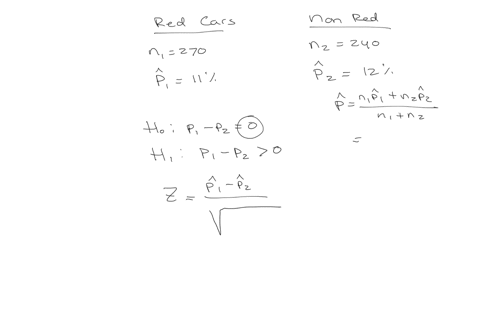 Red Cars
n₁ = 270
p̂₁ = 11%
Non Red
n₂ = 240
p̂₂ = 12%
p̂ = (n₁p̂₁ + n₂p̂₂) / (n₁ + n₂)
=
H₀: p₁ - p₂ = 0
H₁: p₁ - p₂ > 0
Z = (p̂₁ - p̂₂) / √